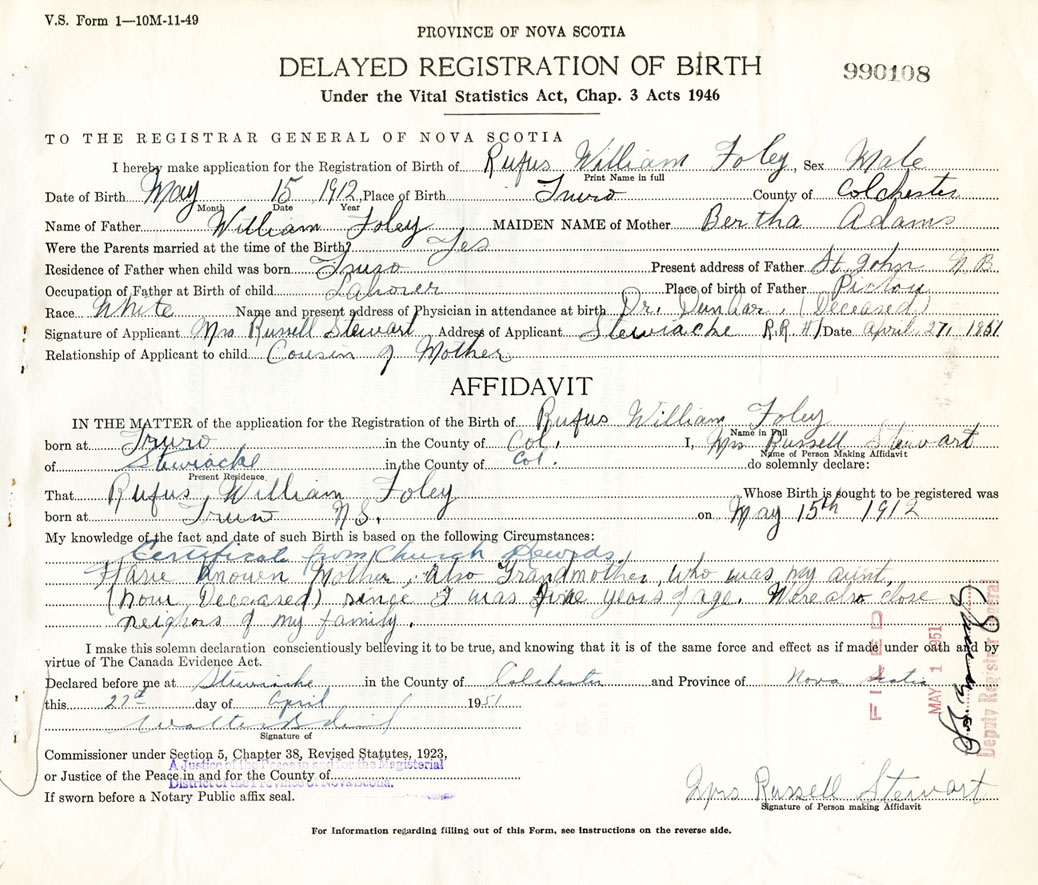 V.S. Form 1—10M-11-49
PROVINCE OF NOVA SCOTIA
DELAYED REGISTRATION OF BIRTH
990108
Under the Vital Statistics Act, Chap. 3 Acts 1946
TO THE REGISTRAR GENERAL OF NOVA SCOTIA
I hereby make application for the Registration of Birth of Rufus William Foley, Sex Male
Print Name in full
Date of Birth May 15 1912, Place of Birth Truro County of Colchester
Month Date Year
Name of Father William Foley MAIDEN NAME of Mother Bertha Adams
Were the Parents married at the time of the Birth? Yes
Residence of Father when child was born Truro Present address of Father St. John N B
Occupation of Father at Birth of child Laborer Place of birth of Father Pictou
Race White Name and present address of Physician in attendance at birth Dr. Dunbar. (Deceased)
Signature of Applicant Mrs. Russell Stewart Address of Applicant Stewiacke R.R #1 Date April 27, 1951
Relationship of Applicant to child Cousin of Mother
AFFIDAVIT
IN THE MATTER of the application for the Registration of the Birth of Rufus William Foley
Name in Full
born at Truro in the County of Col. I, Mrs Russell Stewart
Name of Person Making Affidavit
of Stewiacke in the County of Col. do solemnly declare:
Present Residence
That Rufus William Foley Whose Birth is sought to be registered was
born at Truro N.S. on May 15th 1912
My knowledge of the fact and date of such Birth is based on the following Circumstances:
Certificate from Church Records,
Have known Mother, also Grandmother, who was my aunt,
(now Deceased) since I was years of age. Were also close
neighors of my family.
I make this solemn declaration conscientiously believing it to be true, and knowing that it is of the same force and effect as if made under oath and by
virtue of The Canada Evidence Act.
Declared before me at Stewiacke in the County of Colchester and Province of Nova Scotia
this 27th day of April 1951
Signature of
Commissioner under Section 5, Chapter 38, Revised Statutes, 1923,
A Justice of the Peace in and for the Magisterial
or Justice of the Peace in and for the County of
District of the Province of Nova Scotia.
If sworn before a Notary Public affix seal.
Mrs Russell Stewart
Signature of Person making Affidavit
FILED
MAY 1 1951
Deputy Registrar General
For Information regarding filling out of this Form, see instructions on the reverse side.